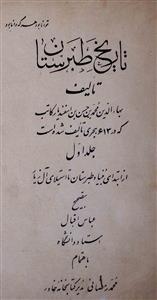 تاریخ طبرستان
تألیف
بهاءالدین محمد بن حسن بن اسفندیار کاتب
که در ۶۱۳ هجری تألیف شده است
جلد اول
از ابتدای بنیاد طبرستان تا استیلای آل زیار
بتصحیح
عباس اقبال
استاد دانشگاه
باهتمام
محمد رمضانی